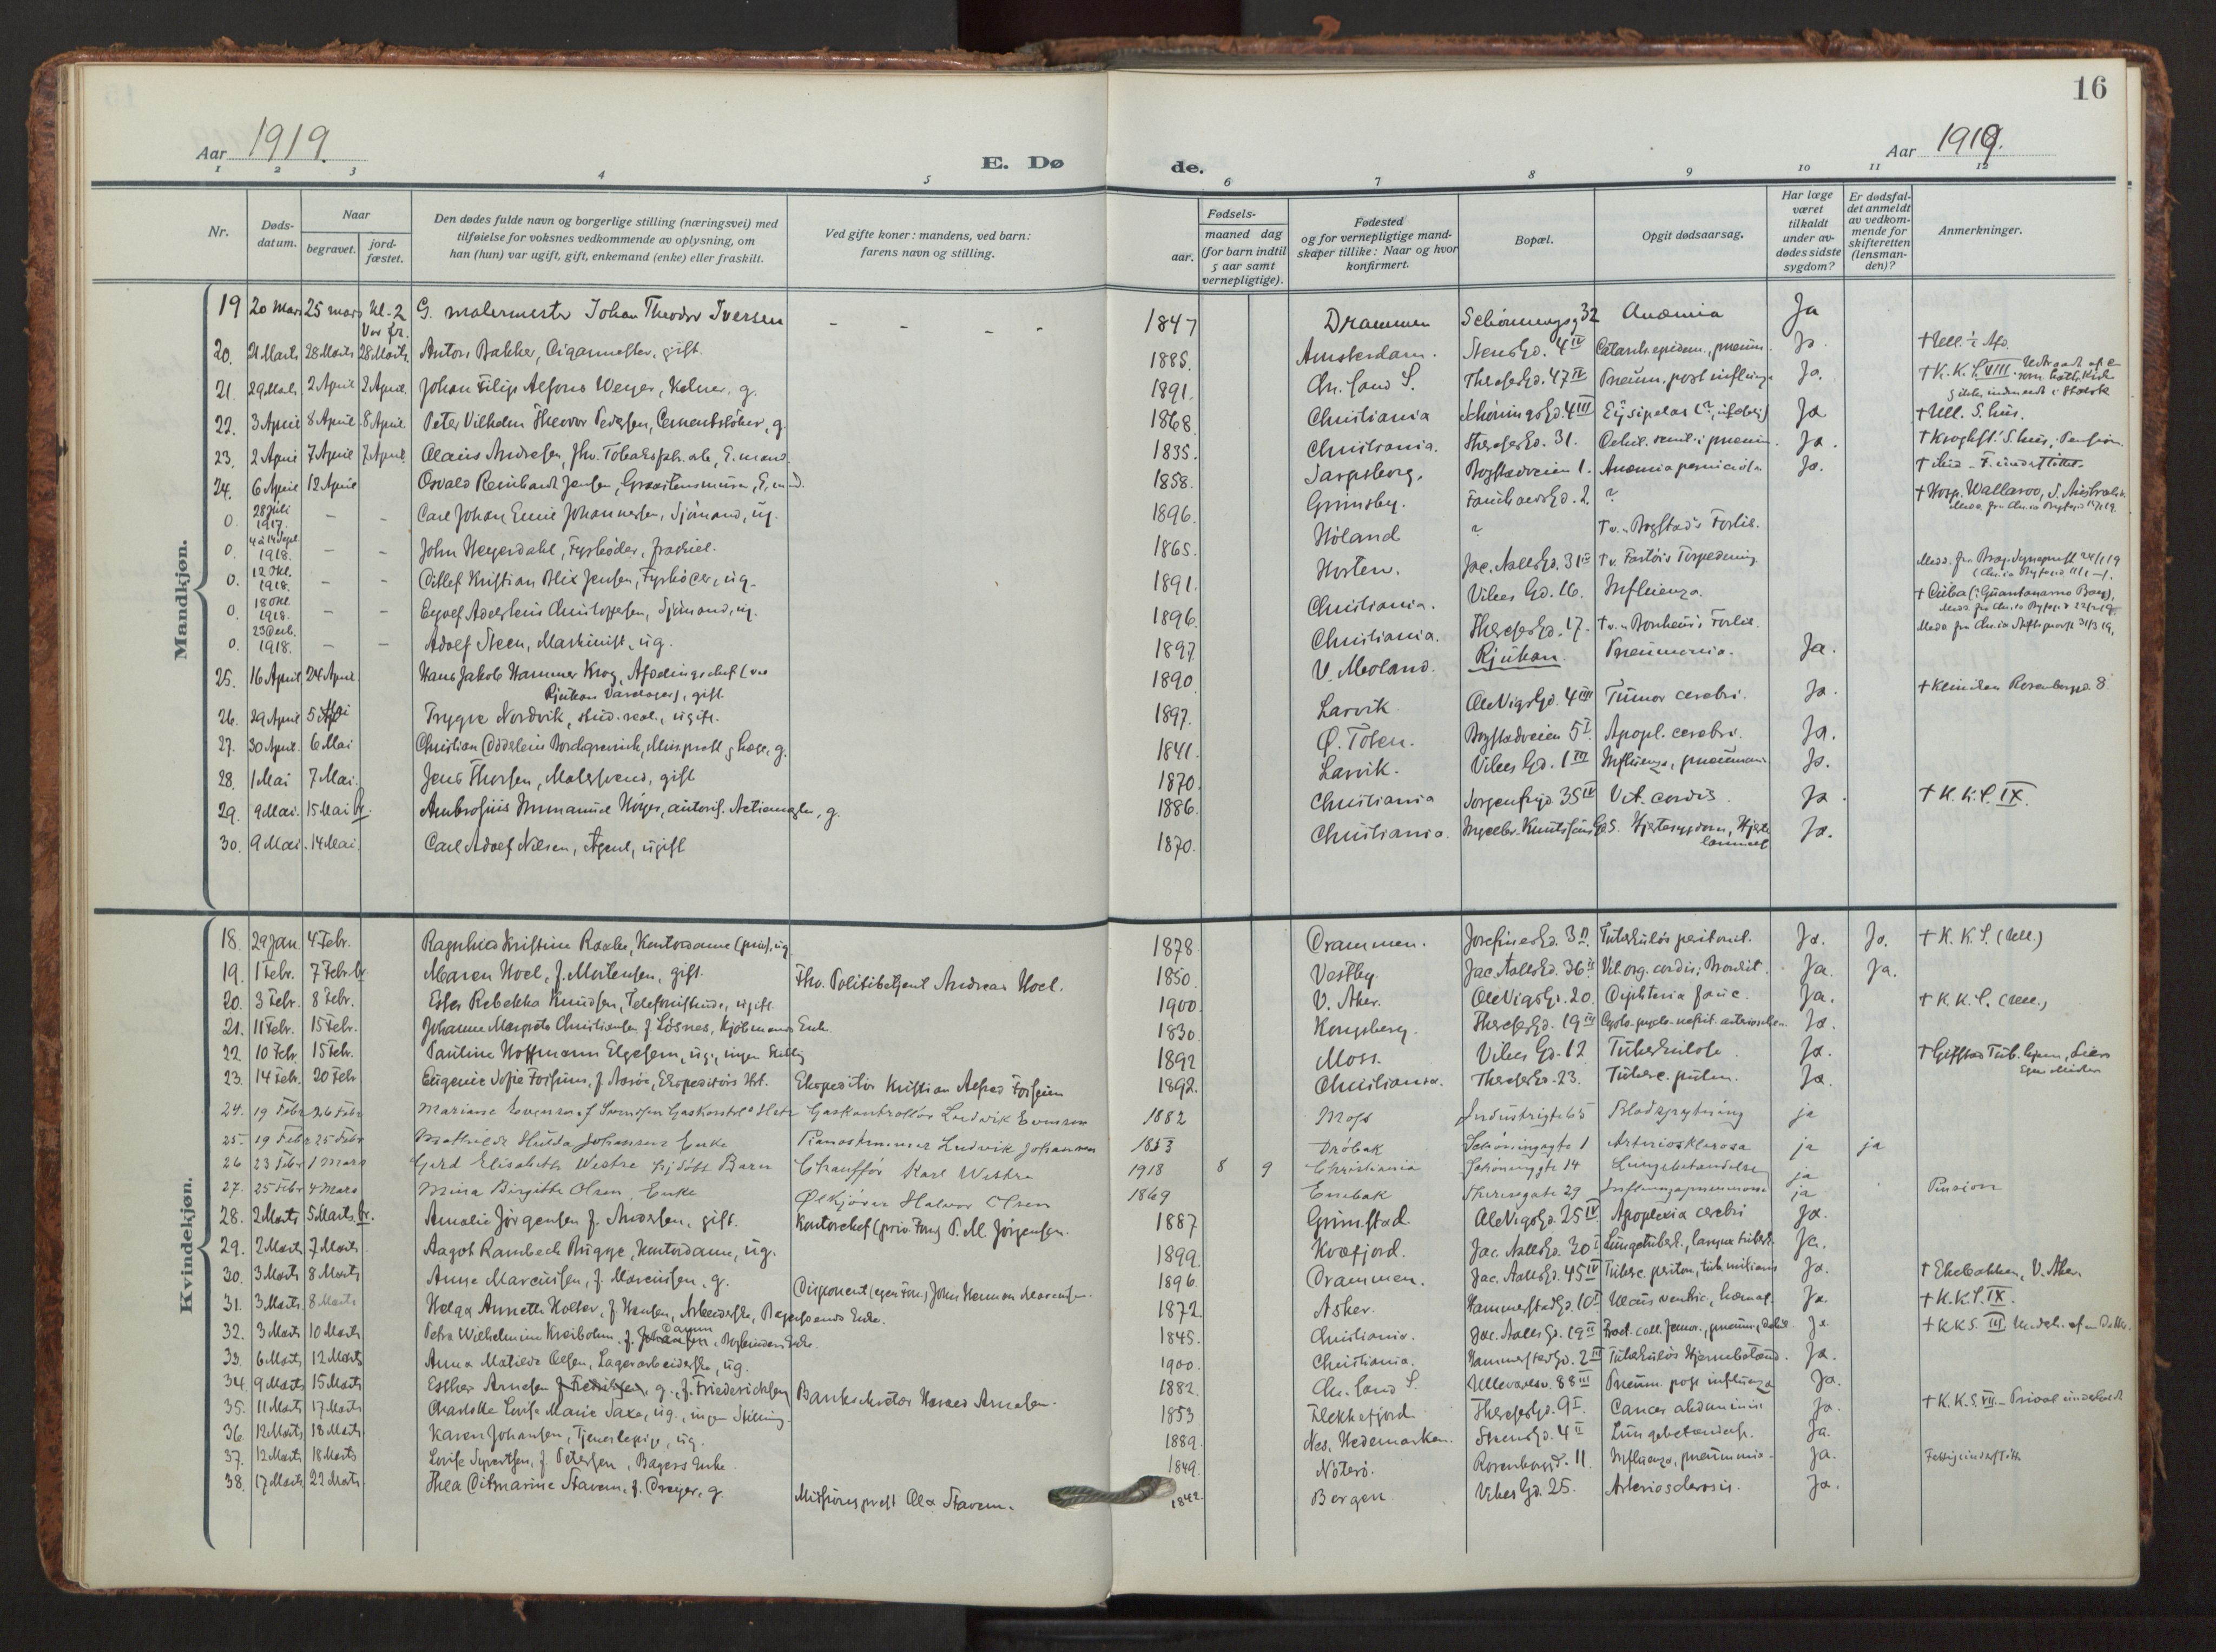 16
Aar 1919.
E. Døde.
Aar 1919.
1 2 3 4 5 6 7 8 9 10 11 12
Nr.
Døds-datum.
Naar
begravet.
jord-fæstet.
Den dødes fulde navn og borgerlige stilling (næringsvei) med
tilføielse for voksnes vedkommende av oplysning, om
han (hun) var ugift, gift, enkemand (enke) eller fraskilt.
Ved gifte koner: mandens, ved barn:
farens navn og stilling.
Fødsels-
aar.
maaned dag
(for barn indtil
5 aar samt
vernepligtige).
Fødested
og for vernepligtige mand-
skaper tillike: Naar og hvor
konfirmert.
Bopæl.
Opgit dødsaarsag.
Har læge
været
tilkaldt
under av-
dødes sidste
sygdom?
Er dødsfal-
det anmeldt
av vedkom-
mende for
skifteretten
(lensman-
den)?
Anmerkninger.
Mandkjøn.
19 20 Mars 25 mars kl. 2 G. malermester Johan Theodor Iversen - - - - 1847 Drammen Schönningsg 32 Anæmia Ja
Vor fr.
20. 21 Marts 28 Marts 28 Marts Anton Bakker, Cigarmester, gift. 1885. Amsterdam. Stens Gd. 4 IV Catarrh. epidem., pneum. Ja. † Ull.
21. 29 Marts 2 April 2 April Johan Filip Alfons Weyer, Kelner, g. 1891. Chr. Sand S. Thereses Gd. 47 IV Pneum. post influenza Ja. † K. K. S. VIII.
22. 3 April 8 April 8 April Peter Vilhelm Theodor Pedersen, Cementstøber, g. 1868 Christiania Schönings Gd. 4 III Ja † Ull. S.hus.
23. 2 April 7 April 7 April Claus Andresen, fhv. Tobaksfab.arb., E.mand. 1835. Christiania. Thereses Gd. 31. Ja. † Kroghst. S.hus, Pension.
24. 6 April 12 April Osvald Reinhardt Jensen, E.md. 1858. Sarpsborg. Bogstadveien 1. Anæmia perniciosa Ja.
0. 28 Juli 1917. - - Carl Johan Emil Johannesen, Sjömand, ug. 1896. Grimsby. Fauchalds Gd. 2 ? † Hosp. Wallaroo, S. Australia.
0. 4 à 14 Sept. 1918. - - John Heyerdahl, Fyrbøder, fraskilt. 1865. Höland ? T.v. "Bogstad's" Forlis.
0. 12 Okt. 1918. - - Ditlef Kristian Blix Jensen, Fyrböder, ug. 1891. Horten. Jac. Aalls Gd. 31 II T.v. Fartöis Torpedering
0. 18 Okt. 1918. - - Sjömand, ug. 1896. Christiania. Vibes Gd. 16. Influenza. † Cuba (: Guantanamo Bay),
0. 23 Decb. 1918. - - Adolf Steen, Maskinist, ug. 1897 Christiania. Thereses Gd. 17. T.v. "Bornheim's" Forlis.
25. 16 April 24 April Hans Jakob Hammer Krog, Afdelingschef (ved 1890 V. Moland. Rjukan. Pneumonia. Ja.
Rjukan Vandlager), gift.
26. 29 April 5 Mai Trygve Nordvik, stud. real., ugift. 1897. Larvik Ole Vigs Gd. 4 III Tumor cerebri. Ja. † Kliniken Rosenborggd. 8
27. 30 April. 6 Mai Christian Borchgrevink, Missprest & læge, g. 1841. Ø. Toten. Bogstadveien 5 I. Apopl. cerebri. Ja.
28. 1 Mai 7 Mai. Jens Thorsen, Malersvend, gift 1870. Larvik. Vibes Gd. 1 III Influenza, pneumoni Ja.
29. 9 Mai. 15 Mai Ambrosius Immanuel Höyer, autoris. Actiemægler, g. 1886. Christiania Sorgenfrigd 35 IV Vit. cordis. Ja. † K. K. S. IX.
30. 9 Mai. 14 Mai. Carl Adolf Nilsen, Agent, ugift 1870. Christiania. Ja.
Kvindekjøn.
18. 29 Jan. 4 Febr. Ragnhild Kristine Raabe, Kontordame (priv), ug 1878 Drammen. Josefines Gd. 3 II. Tuberkulös peritonit. Ja. Ja. † K. K. S. (Ull.)
19. 1 Febr. 7 Febr. Maren Hoel, f. Mortensen, gift. Fhv. Politibetjent Andreas Hoel. 1850. Vestby. Jac. Aalls Gd. 36 II Vit. org. cordis; Bronkit. Ja. Ja.
20. 3 Febr. 8 Febr. Ester Rebekka Knudsen, Telefonistinde, ugift. 1900. V. Aker. Ole Vigs Gd. 20. Diphteria fauc. Ja. † K.K.S. (Ull.)
21. 11 Febr. 15 Febr. Johanne Margrete Christiansen f. Lösnes, Kjöbmands Enke. 1830. Kongsberg. Thereses Gd. 19 III Ja.
22 10 Febr. 15 Febr. Pauline Hoffmann Elgesem, ug., ingen Stilling 1892 Moss. Vibes Gd. 12 Tuberkulose. Ja.
23. 14 Feb. 20 Febr Eugenie Sofie Forfum, Expeditörs Hst. Expeditör Kristian Alfred Forfum 1892. Christiania. Thereses Gd. 23. Tuberc. pulm. Ja.
24. 19 Febr 26 Febr Mariane Evensen f. Svendsen Gaskontrl. Hstr Gaskontrollör Ludvik Evensen 1882 Moss Industrigt 65 Blodspytning ja
25. 19 Febr 25 Febr Mathilde Hulda Johansen Enke Pianostemmer Ludvik Johansen 1853 Dröbak Schönningsgte 1 Arteriosklerosa ja ja
26 23 Febr 1 Mars Gerd Elisabeth Westre Barn Chaufför Karl Westre 1918 8 9 Christiania Schönninggte 14 Lungebetændelse ja
27. 25 Febr 4 Mars Mina Birgitte Olsen, Enke Ölkjörer Halvor Olsen 1869 Enebak Theresegate 29 Influenzapneumoni ja Pension
28. 2 Marts 5 Marts. Amalie Jörgensen f. Andersen, gift. Kontorchef (priv. Forr) P. M. Jörgensen. 1887 Grimstad Ole Vigs Gd. 25 IV Apoplexia cerebri Ja.
29. 2 Marts 7 Marts Aagot Rambech Brügge, Kontordame, ug. 1899. Kvæfjord. Jac. Aalls Gd. 30 I Ja.
30. 3 Marts 8 Marts Anne Marcussen, f. Marcussen, g. Disponent (egen Forr.) John Herman Marcussen. 1896. Drammen. Jac. Aalls Gd. 45 IV Ja. † Ekebakken, V. Aker
31. 3 Marts 8 Marts Helga Annette Holter, f. Hansen, Arbeiderske, Enke. 1872. Asker. Hammerstads Gd. 10 I Ulcus ventric., hæmat. Ja. † K.K.S. IX.
32. 3 Marts 10 Marts Petra Wilhelmine Kreibohm, f. Johansen Damm, Bogbinders Enke 1845. Christiania. Jac. Aalls Gd. 19 II Ja. † K K S. III
33. 6 Marts 12 Marts Anna Matilde Olsen, Lagerarbeiderske, ug. 1900. Christiania. Hammerstads Gd. 2 III Tuberkulös Hjernebetænd. Ja.
34. 9 Marts 15 Marts Esther Arnesen f. Fredriksen, g., f. Friederichsen Bankdirektör Harald Arnesen. 1882. Chr. Sand S. Ullevaalsv. 88 III Pneum. post influenza Ja.
35. 11 Marts 17 Marts Charlotte Lovise Marie Saxe, ug., ingen Stilling. 1853 Flekkefjord Thereses Gd. 9 I. Cancer abdominis Ja. † K.K.S. VII.
36. 12 Marts 18 Marts Karen Johansen, Tjenestepige, ug. 1889. Nes, Hedemarken. Stens Gd. 4 II Lungebetændelse. Ja.
37. 12 Marts 18 Marts Lovise Syvertsen, f. Petersen, Bagers Enke. 1849. Nöterö. Rosenborggd. 11 Influenza, pneumonia. Ja. Fattigunderstött.
38. 17 Marts 22 Marts. Thea Ditmarine Stavem, f. Dreyer, g. Missionsprest Ole Stavem. 1842 Bergen Vibes Gd. 25. Arteriosclerosis. Ja.